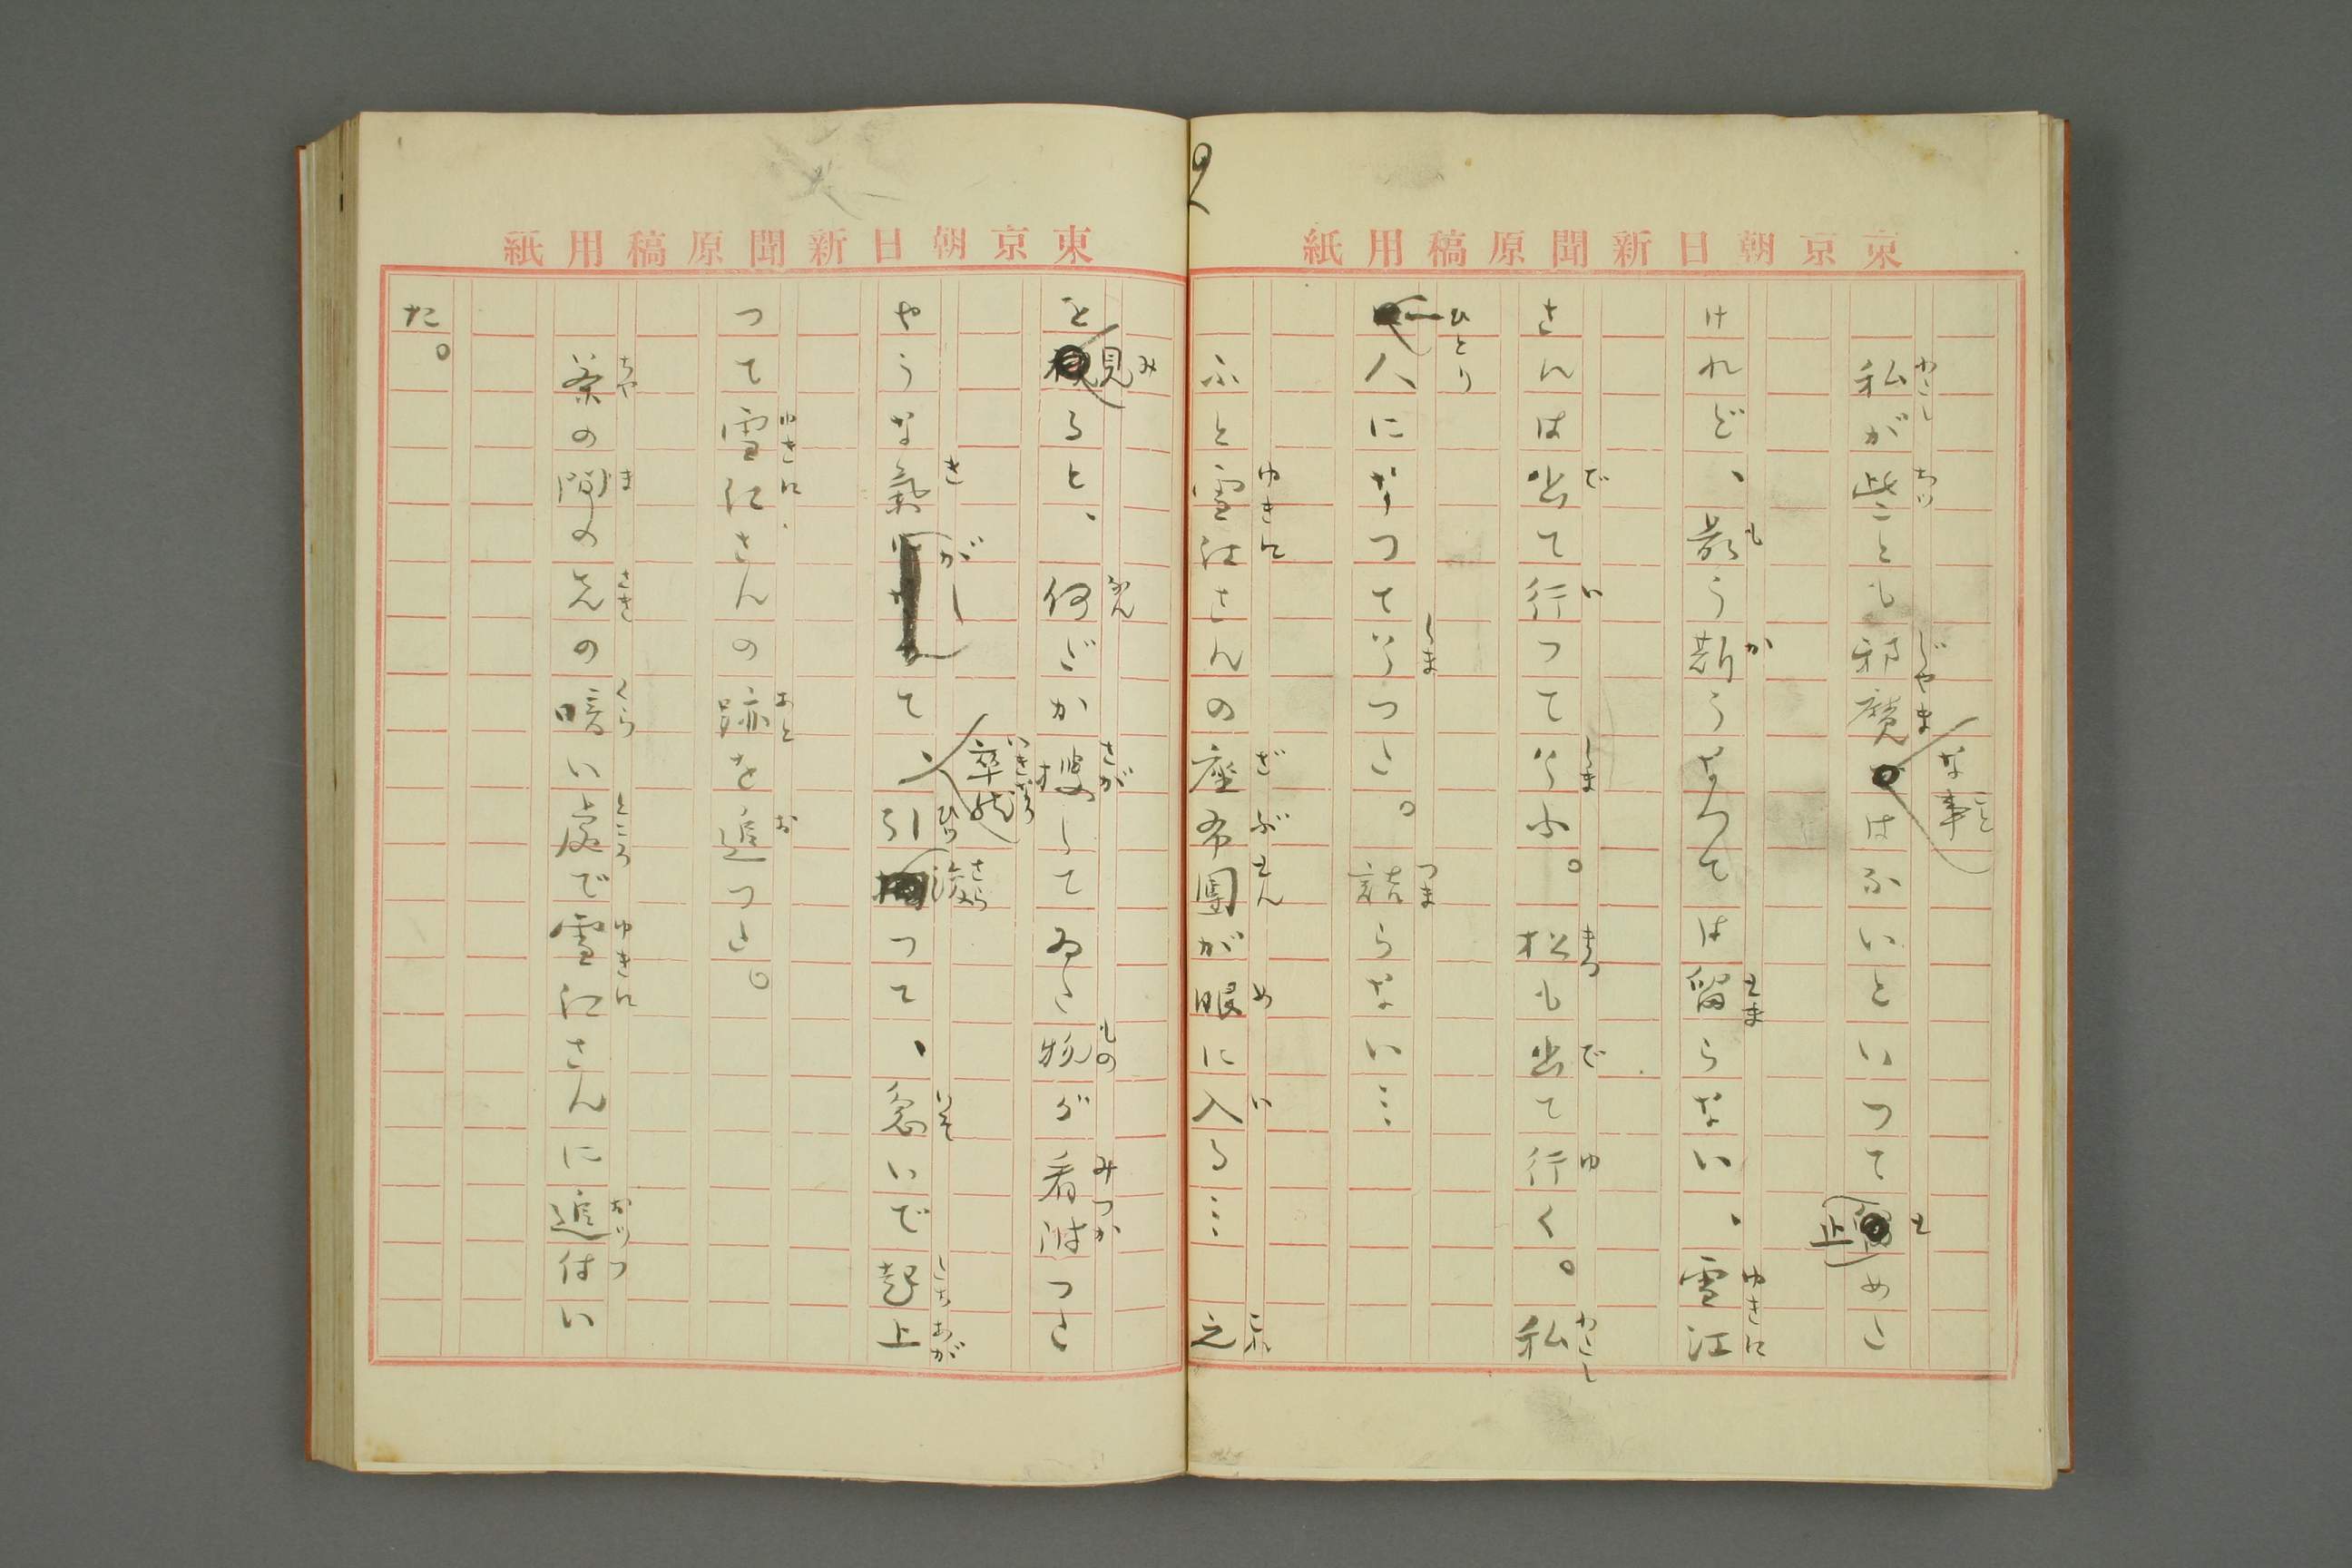 東京朝日新聞原稿用紙
私が些とも邪魔な事はないといつて止めた
けれど、最う斯うなつては留らない、雪江
さんは出て行つて了ふ。松も出て行く。私
一人になつて了つた。詰らない…
ふと雪江さんの座布團が眼に入る…之
東京朝日新聞原稿用紙
を見ると、何だか捜してゐた物が看附つた
やうな氣がして、卒然引浚つて、急いで起上
つて雪江さんの跡を追つた。
茶の間の先の暗い處で雪江さんに追付い
た。